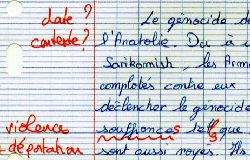 date ?
Le génocide de
contexte ?
l'Anatolie. Du à
Sarikamish, les Armé
complotés contre eux
déclencher le génocide
violences
souffrances telles que
+ déportation
sont aussi noyés. Ils